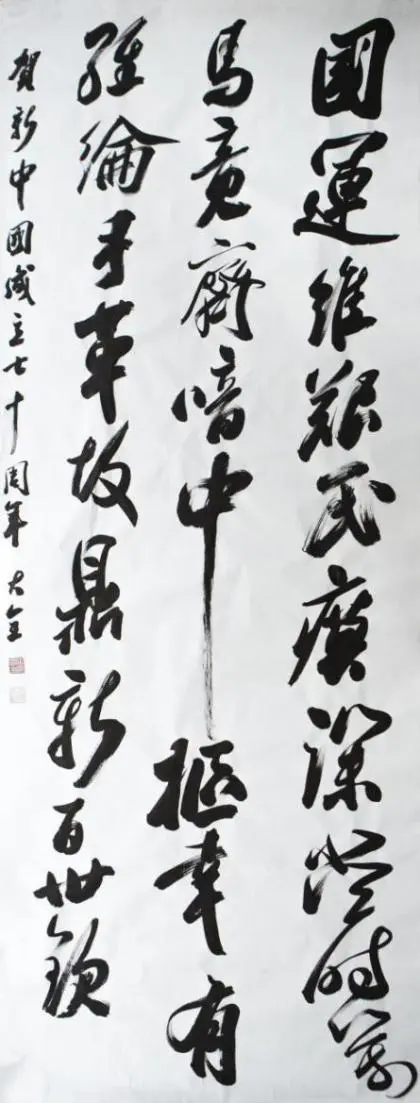 國運維艱民瘼深當時萬
馬竟齊喑中樞幸有
經綸手革故鼎新百世欽
賀新中國成立七十周年